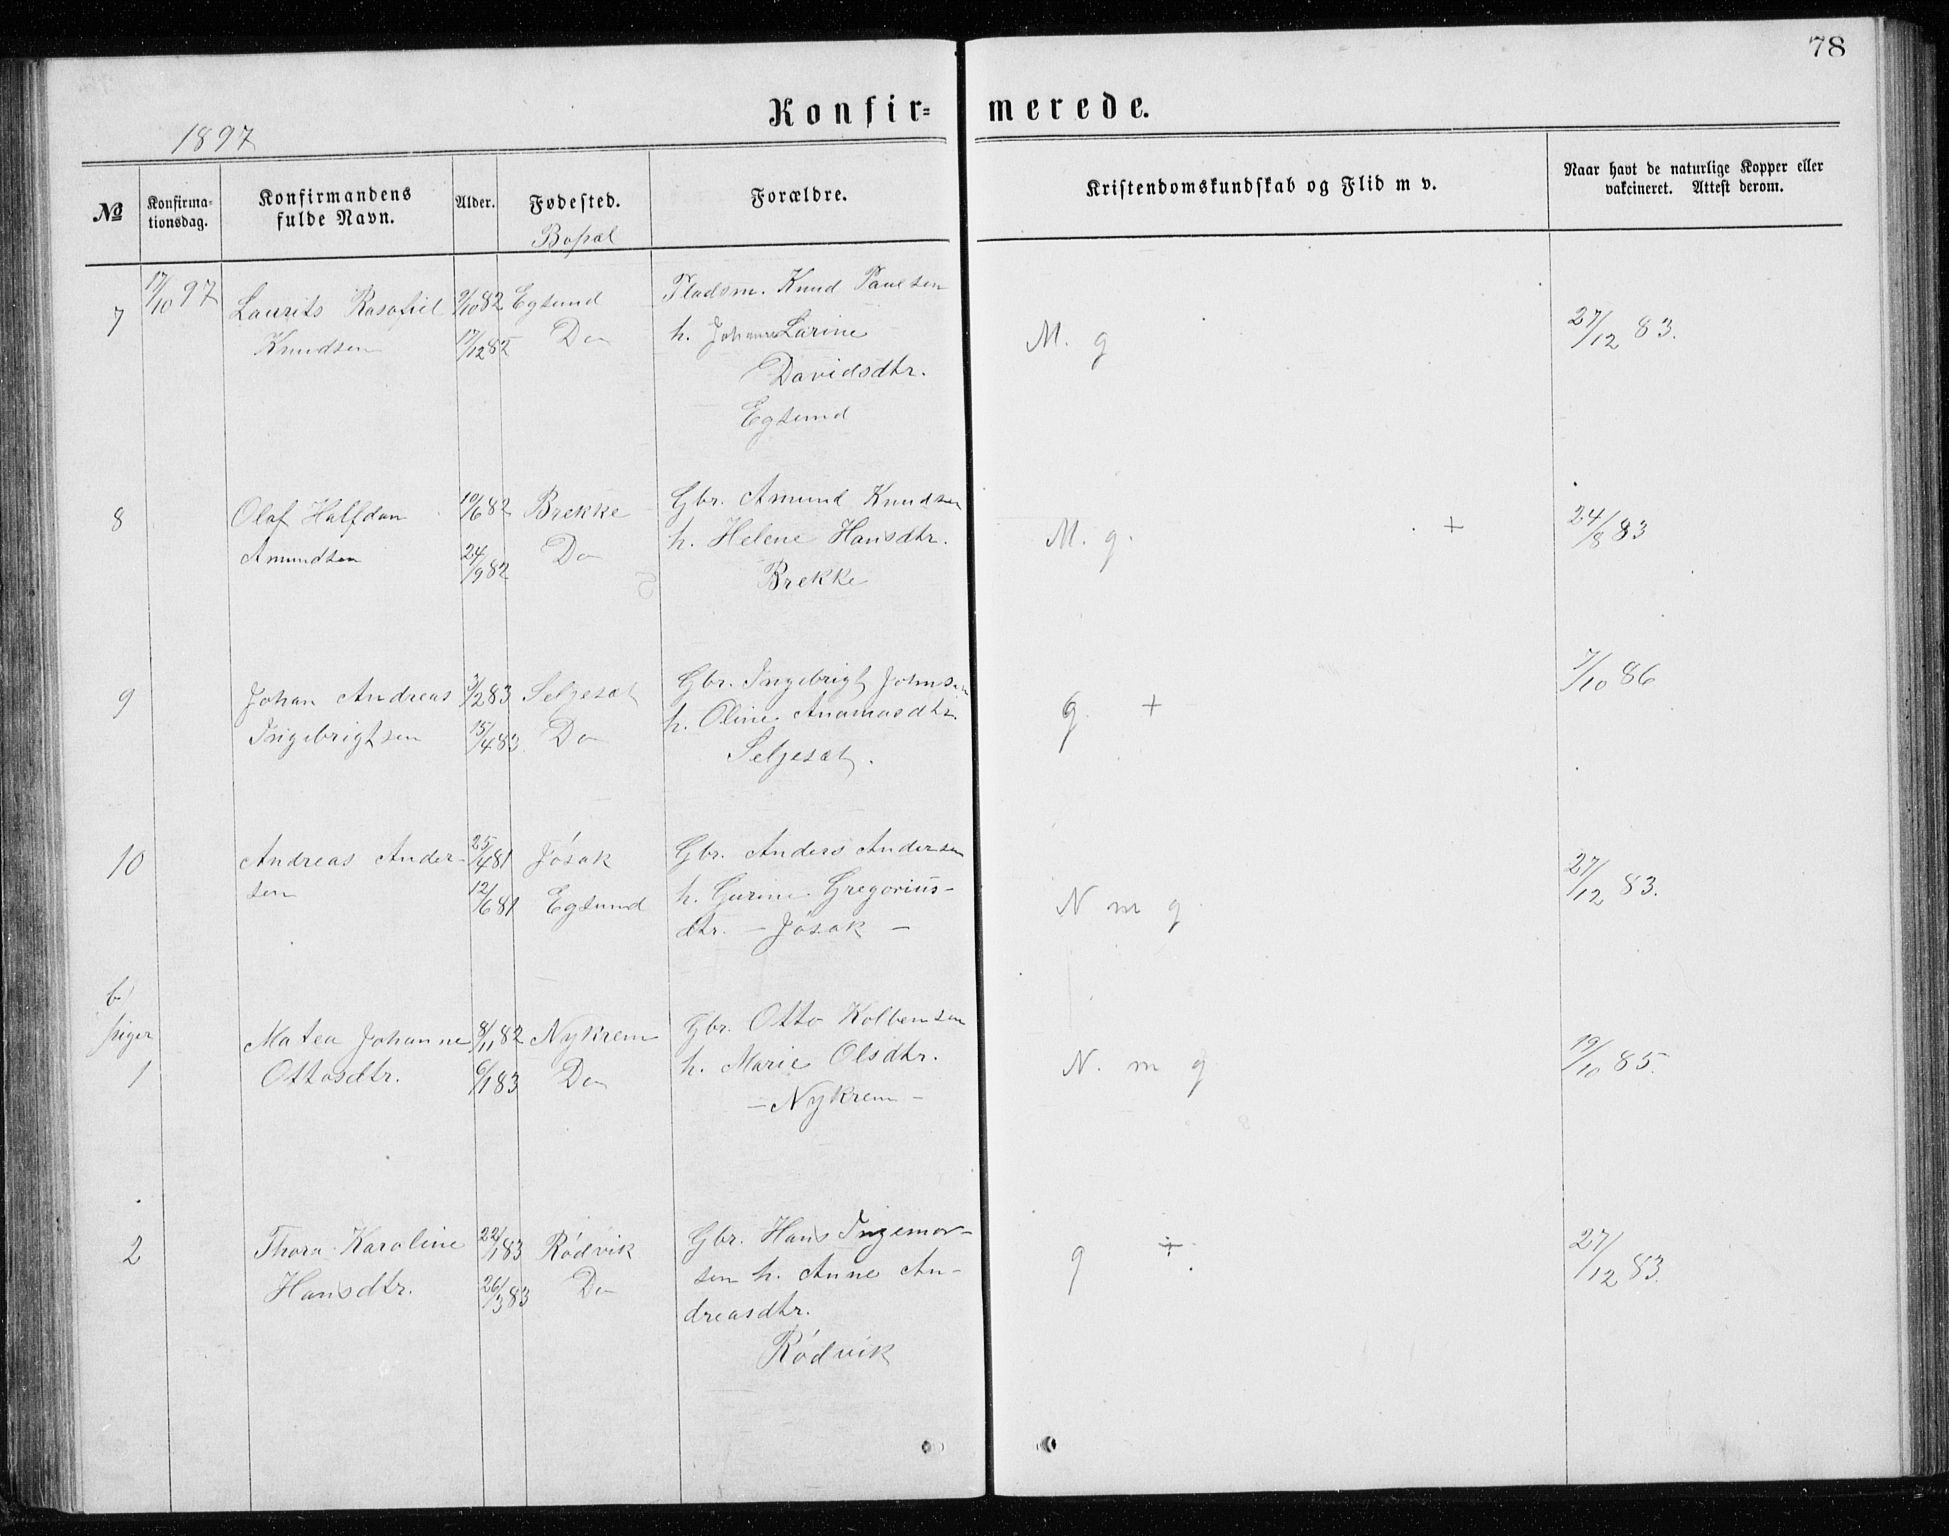 78
Konfir= merede.
1897
№ Konfirma-tionsdag. Konfirmandens fulde Navn. Alder. Fødested. Forældre. Kristendomskundskab og Flid m v. Naar havt de naturlige Kopper eller vakcineret. Attest derom.
Bopæl
7 17/10 97 Laurits 9/10 82 Egsund Pladsm. Knud Paulsen
Knudsen 17/12 82 Do h. Johanne Larine M. g 27/12 83.
Davidsdtr.
Egsund
8 Olaf Halfdan 10/6 82 Brekke Gbr. Amund Knudsen
Amundsen 24/9 82 Do h. Helene Hansdtr. M. g. + 24/8 83
Brekke
9 Johan Andreas 3/2 83 Seljesæt Gbr. Ingebrigt Johnsen 7/10 86
Ingebrigtsen 15/4 83. Do h. Oline g. +
Seljesæt.
10 Andreas Ander- 25/4 81 Jøsok Gbr. Anders Andersen
sen 12/6 81 Egsund h. Gurine Gregorius- N m g 27/12 83.
dtr. — Jøsok —
b)
piger
1 Matea Johanne 8/11 82 Nykrem Gbr. Otto Kolbensen
Ottosdtr. 6/1 83 Do h. Marie Olsdtr. N. m g 19/10 85.
— Nykrem —
2 Thora Karoline 22/1 83 Rødvik Gbr. Hans Ingemor-
Hansdtr. 26/3 83 Do sen h. Anne An- g ÷ 27/12 83.
dreasdtr.
Rødvik